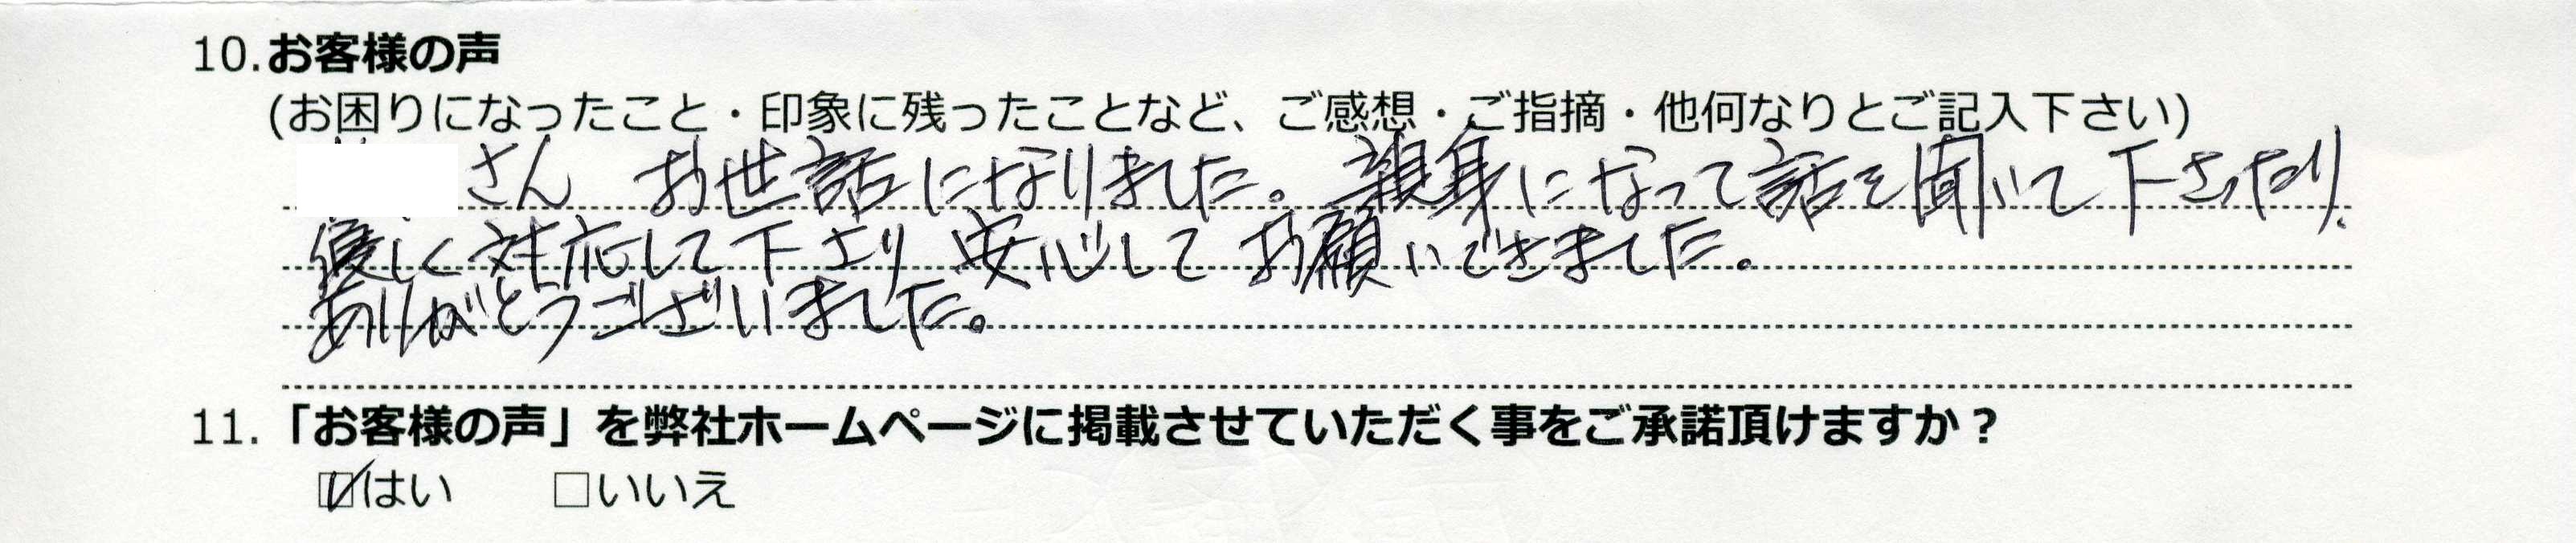 10.お客様の声
(お困りになったこと・印象に残ったことなど、ご感想・ご指摘・他何なりとご記入下さい)
さん お世話になりました。親身になって話を聞いて下さったり、
優しく対応して下さり 安心して お願いできました。
ありがとうございました。
11.「お客様の声」を弊社ホームページに掲載させていただく事をご承諾頂けますか？
☑はい □いいえ